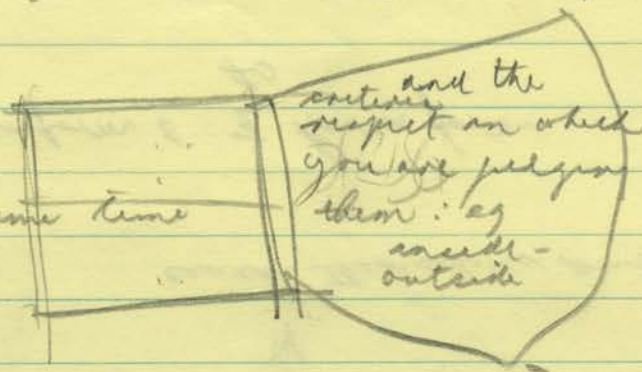 and the
criteria
respect on which
time
you are judging
them : eg
inside -
outside